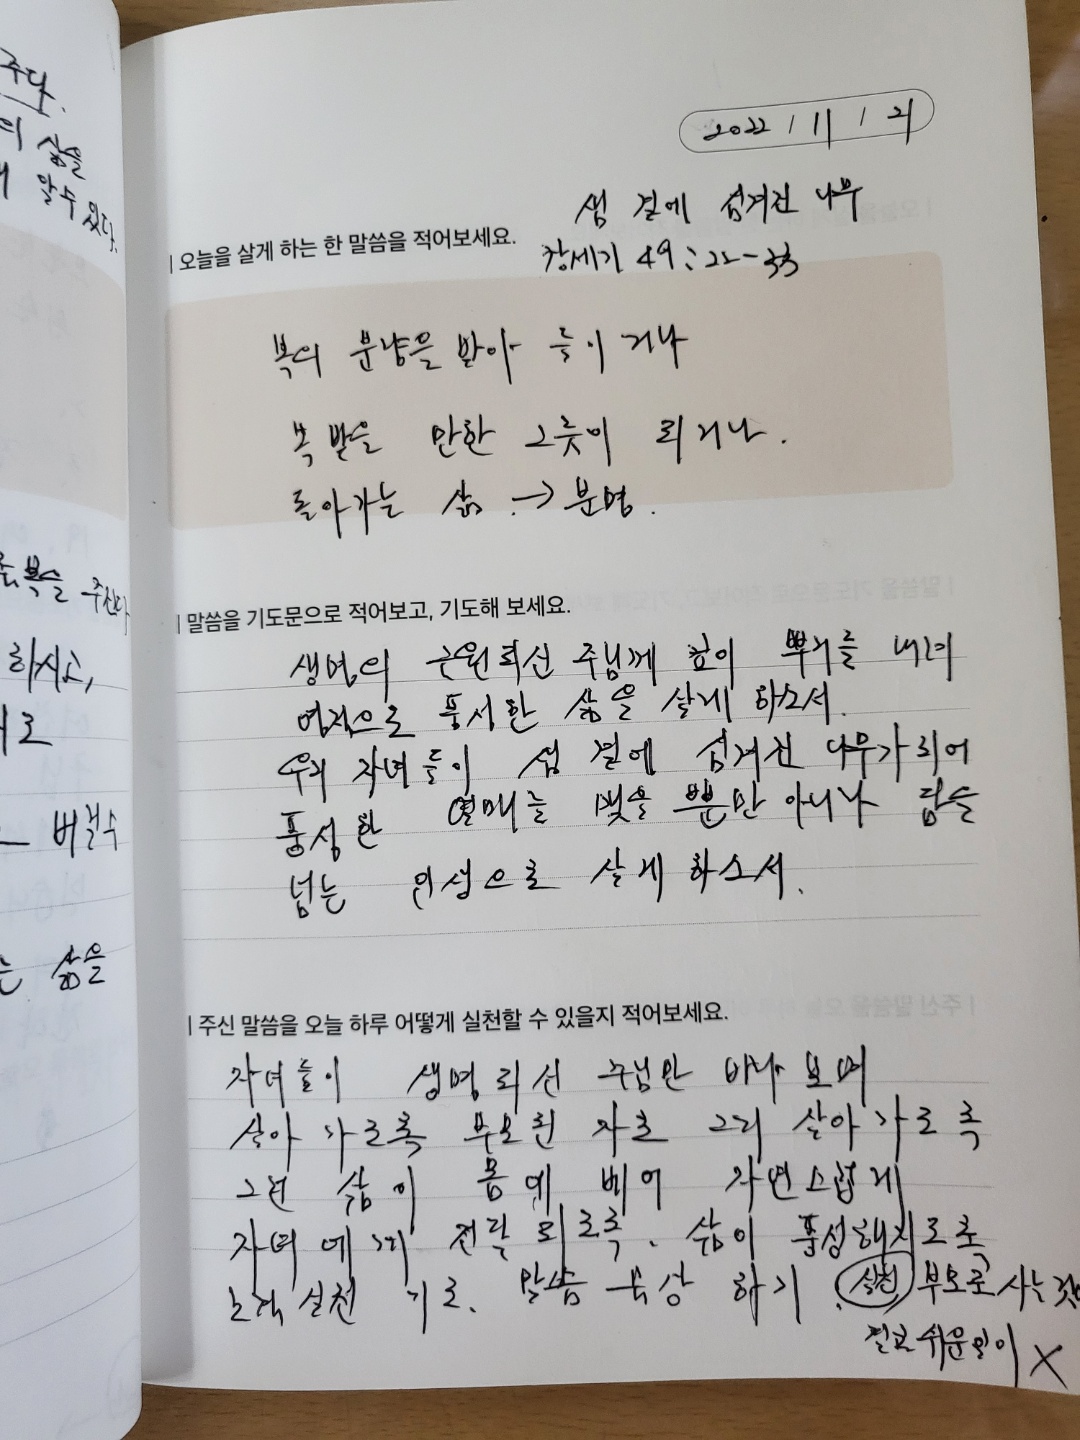 주다.
의 삶을
알수 있다.
복을 주신다
하시고,
로
버릴수
는 삶을
2022 / 11 / 21
샘 곁에 섬겨진 나무
| 오늘을 살게 하는 한 말씀을 적어보세요.
창세기 49:22-33
복의 분량을 받아 들이거나
복 받을 만한 그릇이 되거나.
돌아가는 삶. → 분명.
| 말씀을 기도문으로 적어보고, 기도해 보세요.
생명의 근원되신 주님께 깊이 뿌리를 내려
영적으로 풍성한 삶을 살게 하소서.
우리 자녀들이 샘 곁에 섬겨진 나무가 되어
풍성한 열매를 맺을 뿐만 아니라 담을
넘는 인생으로 살게 하소서.
| 주신 말씀을 오늘 하루 어떻게 실천할 수 있을지 적어보세요.
자녀들이 생명되신 주님만 바라보며
살아가도록 부모된 자로 그리 살아가도록
그런 삶이 몸에 베어 자연스럽게
자녀에게 전달되도록. 삶이 풍성해지도록
노력 실천 기도. 말씀 묵상 하기. 실천 부모로 사는 것
결코 쉬운일이 X